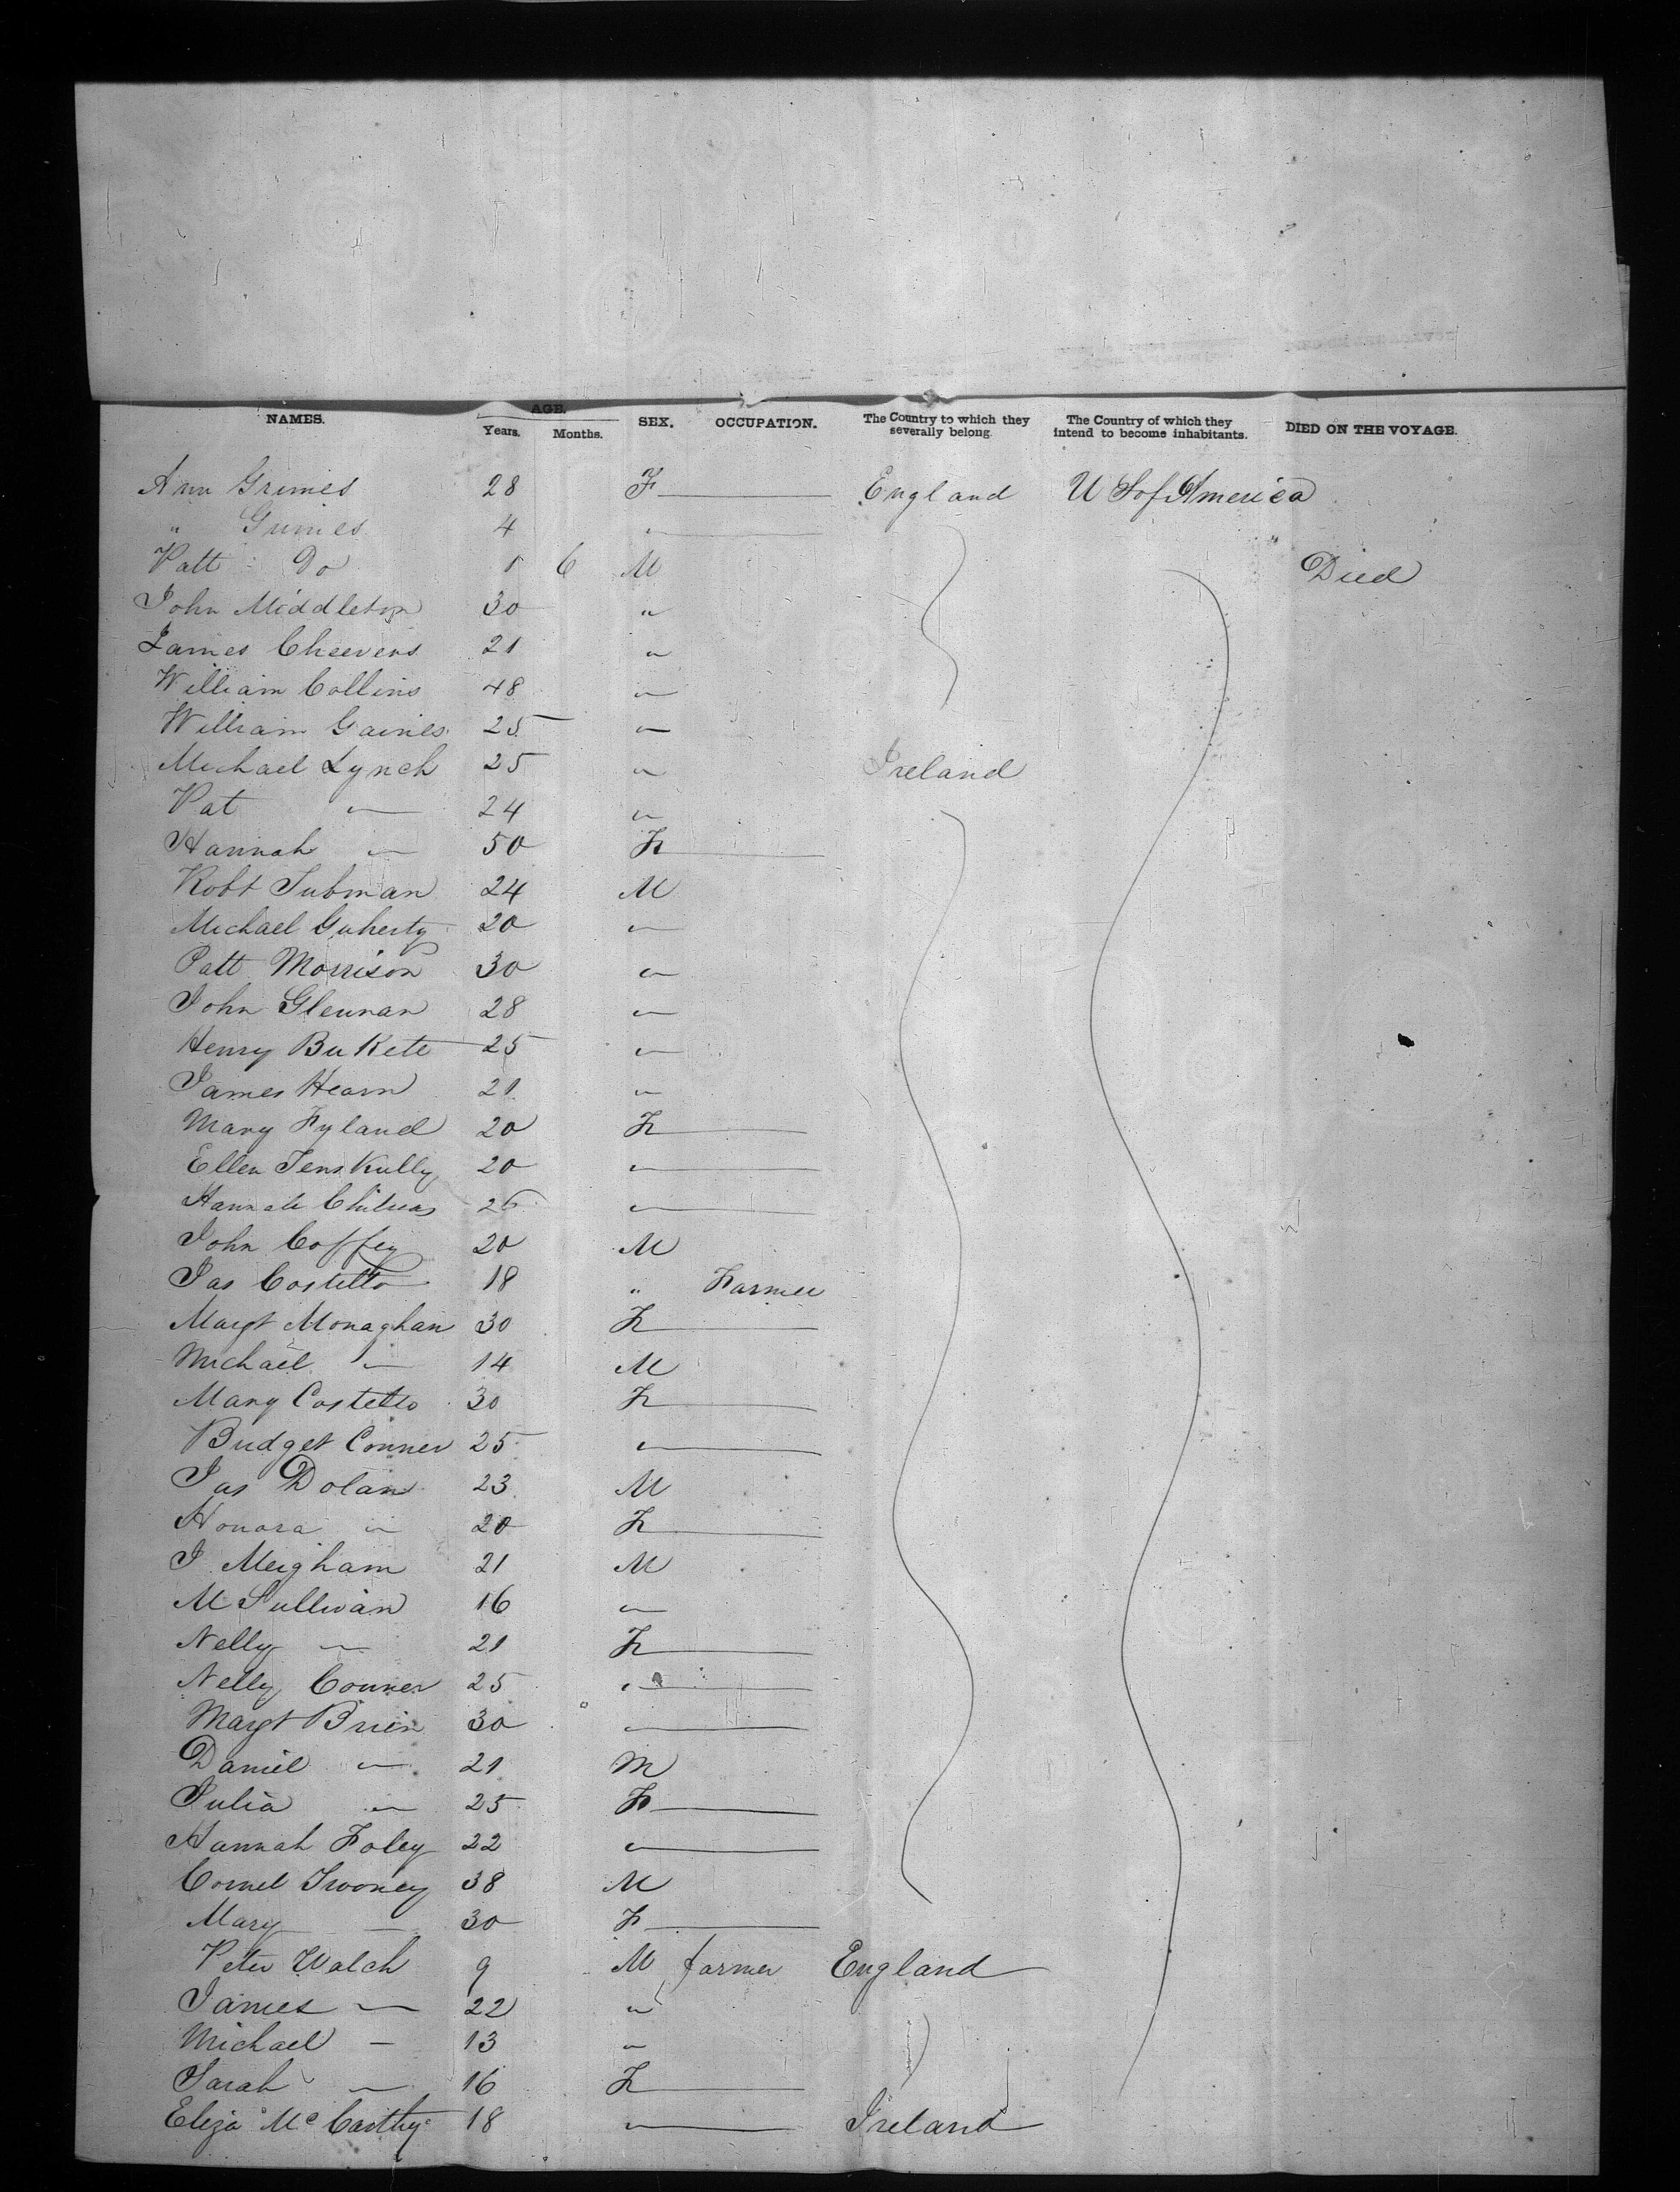 NAMES. AGE. Years. Months. SEX. OCCUPATION. The Country to which they severally belong. The Country of which they intend to become inhabitants. DIED ON THE VOYAGE.
Ann Grimes 28 F England U S of America
" Grimes 4 "
Patt Do 1 6 M Died
John Middleton 30 "
James Cheevers 21 "
William Collins 48 "
William Gaines 25 "
Michael Lynch 25 " Ireland
Pat " 24 "
Hannah " 50 F
Robt Tubman 24 M
Michael Guherty 20 "
Patt Morrison 30 "
John Glennan 28 "
Henry 25 "
James Hearn 21 "
Mary Fyland 20 F
Ellen 20 "
Hannah 26 "
John Coffey 20 M
Jas Costello 18 " Farmer
Margt Monaghan 30 F
Michael " 14 M
Mary Costello 30 F
Bridget Conner 25 "
Jas Dolan 23 M
Honora " 20 F
J Meigham 21 M
M Sullivan 16 "
Nelly " 21 F
Nelly Conner 25 "
Margt Brien 30 "
Daniel " 21 M
Julia " 25 F
Hannah Foley 22 "
Cornel Twoney 38 M
Mary " 30 F
Peter Walch 9 M farmer England
James " 22 "
Michael " 13 "
Sarah " 16 F
Eliza McCarthy 18 " Ireland